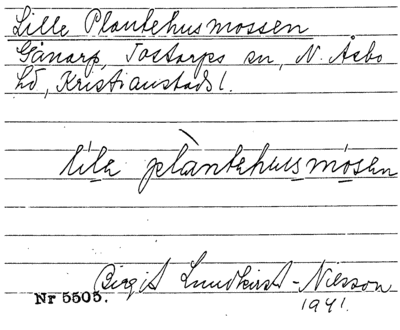 Lille Plantehusmossen
Gånarp, Tostarps sn, N. Åsbo
hd, Kristianstads l.
lile plàntehusmósen
Birgit Lundkvist-Nilsson
Nr 5505. 1941.